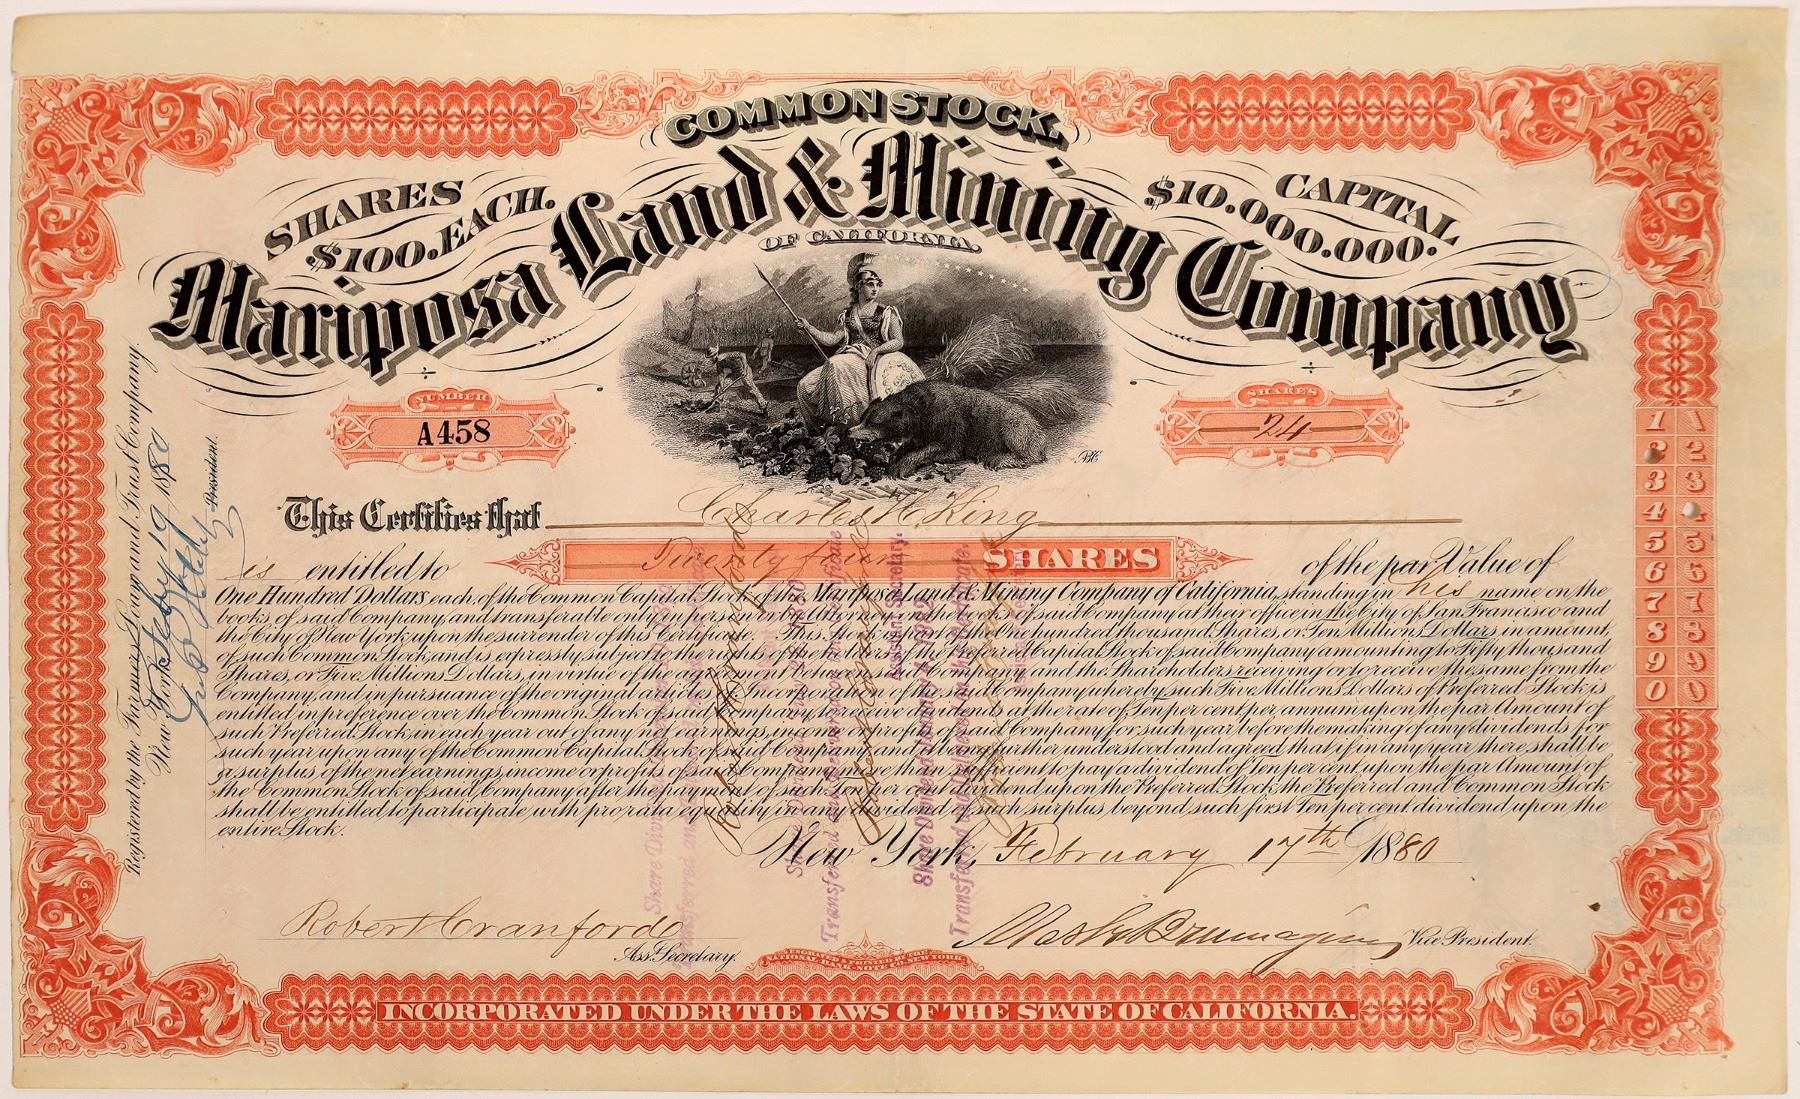 COMMON STOCK.
Mariposa Land & Mining Company
OF CALIFORNIA.
SHARES
$100. EACH.
CAPITAL
$10.000.000.
NUMBER
A458
SHARES
24
This Certifies that Charles H. King
is entitled to Twenty four SHARES of the par Value of
One Hundred Dollars each, of the Common Capital Stock, of the Mariposa Land & Mining Company of California, standing in his name on the
books of said Company, and transferable only in person or by Attorney on the books of said Company at their office in the City of San Francisco and
the City of New York upon the surrender of this Certificate. This Stock is part of the One hundred thousand Shares, or Ten Millions Dollars, in amount,
of such Common Stock, and is expressly subject to the rights of the holders of the Preferred Capital Stock of said Company amounting to Fifty thousand
Shares, or Five Millions Dollars, in virtue of the agreement between said Company and the Shareholders receiving or to receive the same from the
Company, and in pursuance of the original articles of Incorporation of the said Company whereby such Five Millions Dollars of Preferred Stock is
entitled in preference over the Common Stock of said Company to receive dividends at the rate of Ten per cent per annum upon the par Amount of
such Preferred Stock, in each year out of any net earnings, income or profits of said Company for such year before the making of any dividends for
such year upon any of the Common Capital Stock of said Company and it being further understood and agreed that if in any year there shall be
a surplus of the net earnings, income or profits of said Company more than sufficient to pay a dividend of Ten per cent upon the par Amount of
the Common Stock of said Company after the payment of such Ten per cent dividend upon the Preferred Stock, the Preferred and Common Stock
shall be entitled to participate with pro rata equality in any dividend of such surplus beyond such first Ten per cent dividend upon the
entire Stock.
New York, February 17th 1880
Robert Cranford
Ass. Secretary.
Vice President.
NATIONAL BANK NOTE CO. NEW YORK
INCORPORATED UNDER THE LAWS OF THE STATE OF CALIFORNIA.
Registered by the Farmers Loan and Trust Company.
New York Feby 19 1880
President.
Robert Cranford
Assistant Secretary.
Share Dividend January 4 1882
Transferred and
1 1
2 2
3 3
4
5 5
6 6
7 7
8 8
9 9
0 0